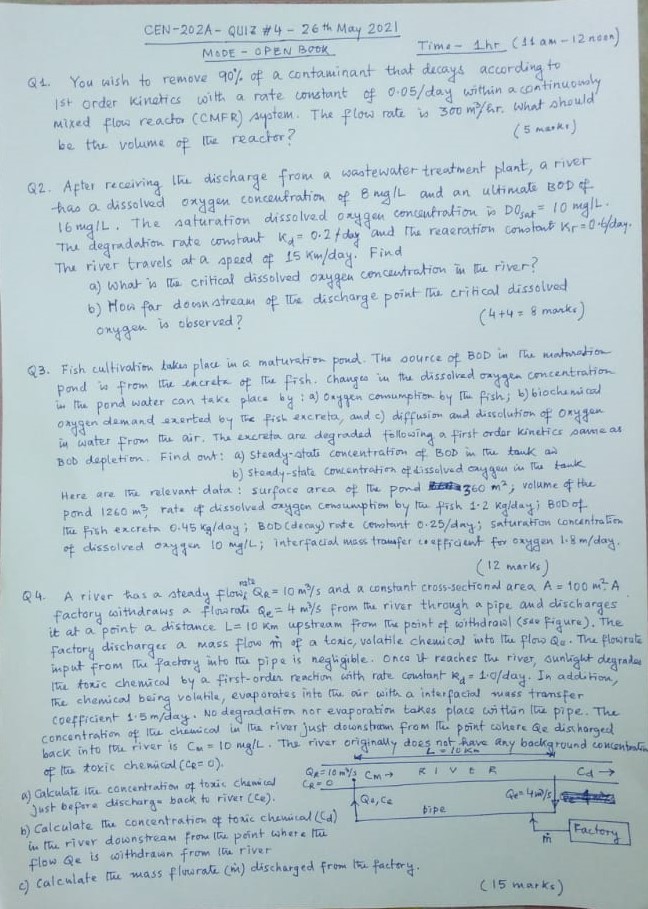 CEN-202A- QUIZ #4 - 26th May 2021
MODE - OPEN BOOK
Time - 1hr (11 am - 12 noon)
Q1. You wish to remove 90% of a contaminant that decays according to
1st order kinetics with a rate constant of 0.05/day within a continuously
mixed flow reactor (CMFR) system. The flow rate is 300 m³/hr. What should
be the volume of the reactor?
(5 marks)
Q2. After receiving the discharge from a wastewater treatment plant, a river
has a dissolved oxygen concentration of 8 mg/L and an ultimate BOD of
16 mg/L. The saturation dissolved oxygen concentration is DOsat = 10 mg/L.
The degradation rate constant Kd = 0.2/day and the reaeration constant Kr = 0.6/day.
The river travels at a speed of 15 Km/day. Find
a) What is the critical dissolved oxygen concentration in the river?
b) How far downstream of the discharge point the critical dissolved
oxygen is observed?
(4+4 = 8 marks)
Q3. Fish cultivation takes place in a maturation pond. The source of BOD in the maturation
pond is from the excreta of the fish. Changes in the dissolved oxygen concentration
in the pond water can take place by : a) Oxygen consumption by the fish; b) biochemical
oxygen demand exerted by the fish excreta, and c) diffusion and dissolution of oxygen
in water from the air. The excreta are degraded following a first order kinetics same as
BOD depletion. Find out: a) Steady-state concentration of BOD in the tank
b) Steady-state concentration of dissolved oxygen in the tank
Here are the relevant data : surface area of the pond 360 m²; volume of the
pond 1260 m³, rate of dissolved oxygen consumption by the fish 1.2 kg/day; BOD of
the fish excreta 0.45 kg/day; BOD (decay) rate constant 0.25/day; saturation concentration
of dissolved oxygen 10 mg/L; interfacial mass transfer coefficient for oxygen 1.8 m/day.
(12 marks)
Q4. A river has a steady flow rate QR = 10 m³/s and a constant cross-sectional area A = 100 m². A
factory withdraws a flowrate Qe = 4 m³/s from the river through a pipe and discharges
it at a point a distance L = 10 Km upstream from the point of withdrawl (see figure). The
factory discharges a mass flow ṁ of a toxic, volatile chemical into the flow Qe. The flowrate
input from the factory into the pipe is negligible. Once it reaches the river, sunlight degrades
the toxic chemical by a first-order reaction with rate constant Kd = 1.0/day. In addition,
the chemical being volatile, evaporates into the air with a interfacial mass transfer
coefficient 1.5 m/day. No degradation nor evaporation takes place within the pipe. The
concentration of the chemical in the river just downstream from the point where Qe discharged
back into the river is Cm = 10 mg/L. The river originally does not have any background concentration
of the toxic chemical (CR = 0).
a) Calculate the concentration of toxic chemical
just before discharge back to river (Ce).
b) Calculate the concentration of toxic chemical (Cd)
in the river downstream from the point where the
flow Qe is withdrawn from the river
c) Calculate the mass flowrate (ṁ) discharged from the factory.
L = 10 Km
QR = 10 m³/s Cm → RIVER Cd →
CR = 0
Qe, Ce
pipe
Qe = 4 m³/s
ṁ
Factory
(15 marks)